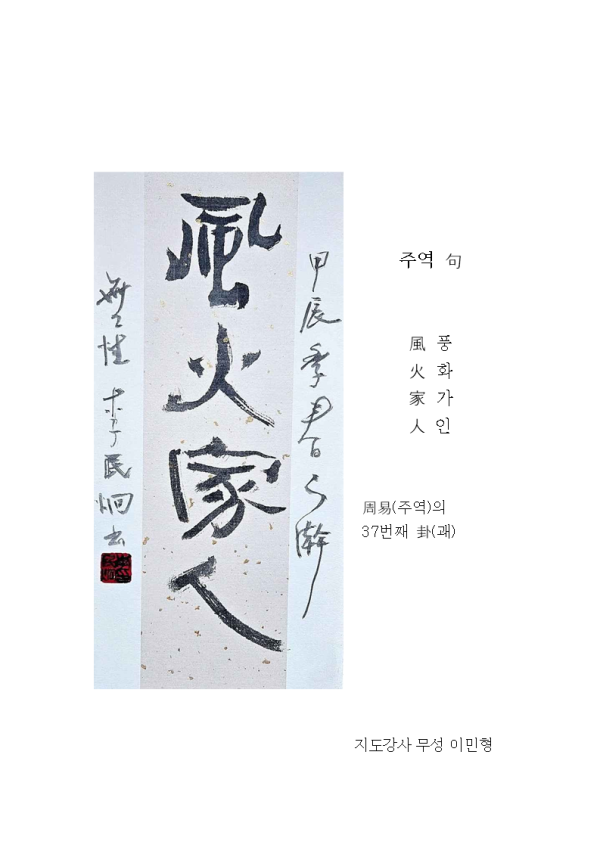 風火家人
甲辰季春之澣
無性 李民炯 書
주역 句
風 풍
火 화
家 가
人 인
周易(주역)의
37번째 卦(괘)
지도강사 무성 이민형